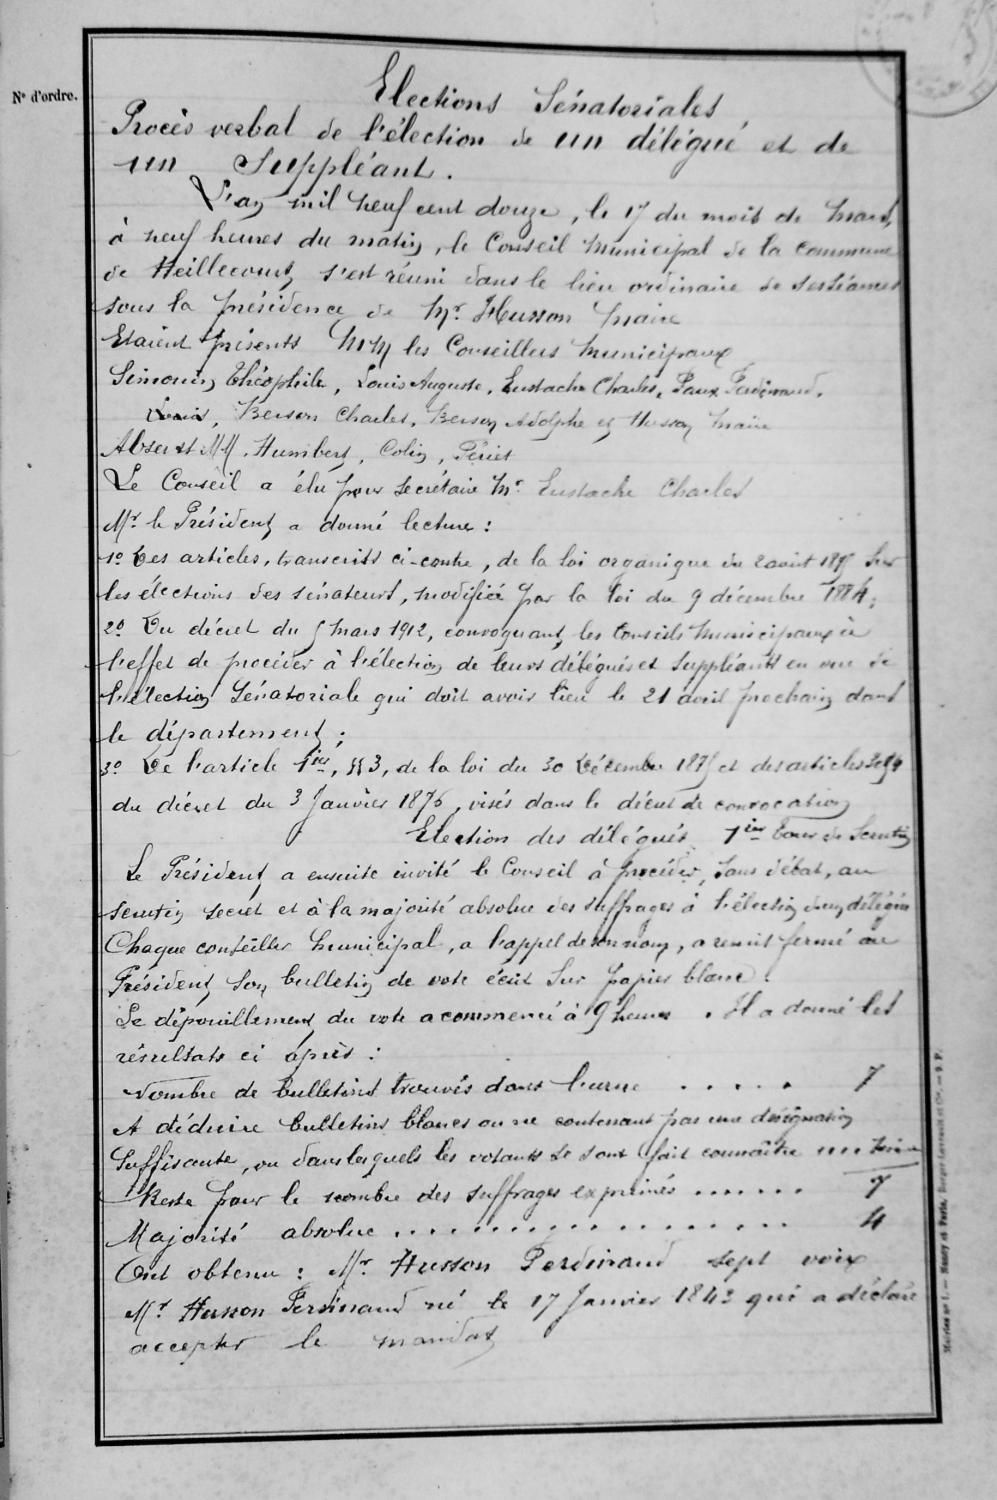 N° d'ordre.
Elections Sénatoriales
Procès verbal de l'élection de un délégué et de
un Suppléant.
L'an mil neuf cent douze, le 17 du mois de Mars,
à neuf heures du matin, le Conseil Municipal de la commune
de Heillecourt s'est réuni dans le lieu ordinaire de ses séances
sous la présidence de Mr Husson Maire
Etaient présents MM les Conseillers Municipaux
Simonin Théophile, Louis Auguste, Eustache Charles, Ferdinand,
Louis, Berson Charles, Berson Adolphe et Husson Maire
Absents MM. Humbert, Colin, Périet
Le Conseil a élu pour secrétaire Mr Eustache Charles
Mr le Président a donné lecture :
1° Des articles, transcrits ci-contre, de la loi organique du 2 août 1875 sur
les élections des sénateurs, modifiée par la loi du 9 décembre 1884;
2° Du décret du 5 Mars 1912, convoquant les Conseils Municipaux à
l'effet de procéder à l'élection de leurs délégués et suppléants en vue de
l'élection Sénatoriale qui doit avoir lieu le 21 avril prochain dans
le département;
3° De l'article 1ier, §§ 3, de la loi du 30 Décembre 1875 et des articles
du décret du 3 Janvier 1876, visés dans le décret de convocation
Election des délégués 1ier Tour de Scrutin
Le Président a ensuite invité le Conseil à procéder, sans débat, au
scrutin secret et à la majorité absolue des suffrages à l'élection d'un délégué
Chaque conseiller Municipal, a l'appel de son nom, a remit fermé au
Président son bulletin de vote écrit sur papier blanc.
Le dépouillement du vote a commencé à 9 heures. Il a donné les
résultats ci après :
Nombre de bulletins trouvés dans l'urne . . . . . 7
A déduire bulletins blancs ou ne contenant pas une désignation
suffisante, ou dans lesquels les votants se sont fait connaître
Reste pour le nombre des suffrages exprimés ....... 7
Majorité absolue .................. 4
Ont obtenu : Mr Husson Ferdinand sept voix
Mr Husson Ferdinand né le 17 Janvier 1843 qui a déclaré
accepter le mandat